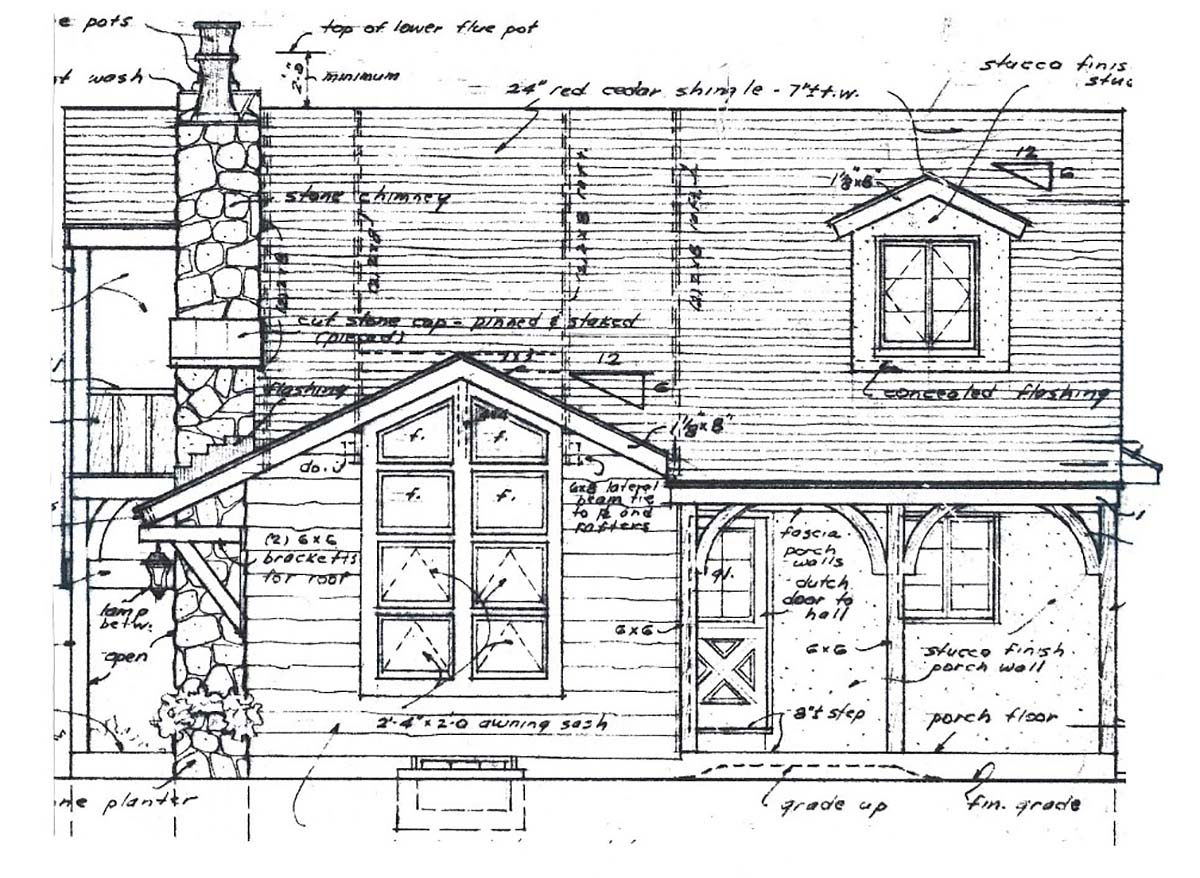 e pots
top of lower flue pot
2'-0"
minimum
wash
24" red cedar shingle - 7"±t.w.
stucco finis
stuc
12
6
1⅛"x8"
stone chimney
(2) 2x8
(2) 2x8
(2) 2x8
(2) 2x8
cut stone cap - pinned & staked
(pieced)
12
6
flashing
concealed flashing
1⅛"x8"
f.
f.
do.
f.
f.
6x8 lateral
beam tie
to
and
rafters
(2) 6x6
bracketts
for roof
fascia
porch
walls
dutch
door to
hall
gl.
lamp
betw.
open
6x6
6x6
stucco finish
porch wall
2'-4"x2'-0 awning sash
8"± step
porch floor
ne planter
grade up
fin. grade